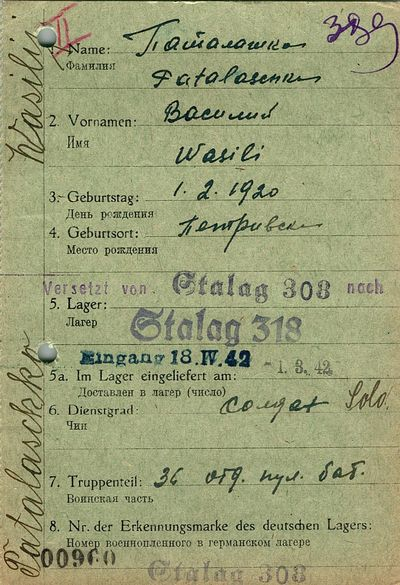 VI
389
Wasili
1. Name: Паталашка
Фамилия
Patalaschka
2. Vornamen: Василий
Имя
Wasili
3. Geburtstag: 1. 2. 1920
День рождения
4. Geburtsort:
Место рождения
Versetzt von. Stalag 308 nach
5. Lager:
Лагер
Stalag 318
Eingang 18. IV. 42 - 1. 3. 42
5a. Im Lager eingeliefert am:
Доставлен в лагер (число)
6. Dienstgrad: солдат Solo.
Чин
Patalaschko
7. Truppenteil: 36 отд. пул. бат.
Воинская часть
8. Nr. der Erkennungsmarke des deutschen Lagers:
Номер военнопленного в германском лагере
00960
Stalag 308